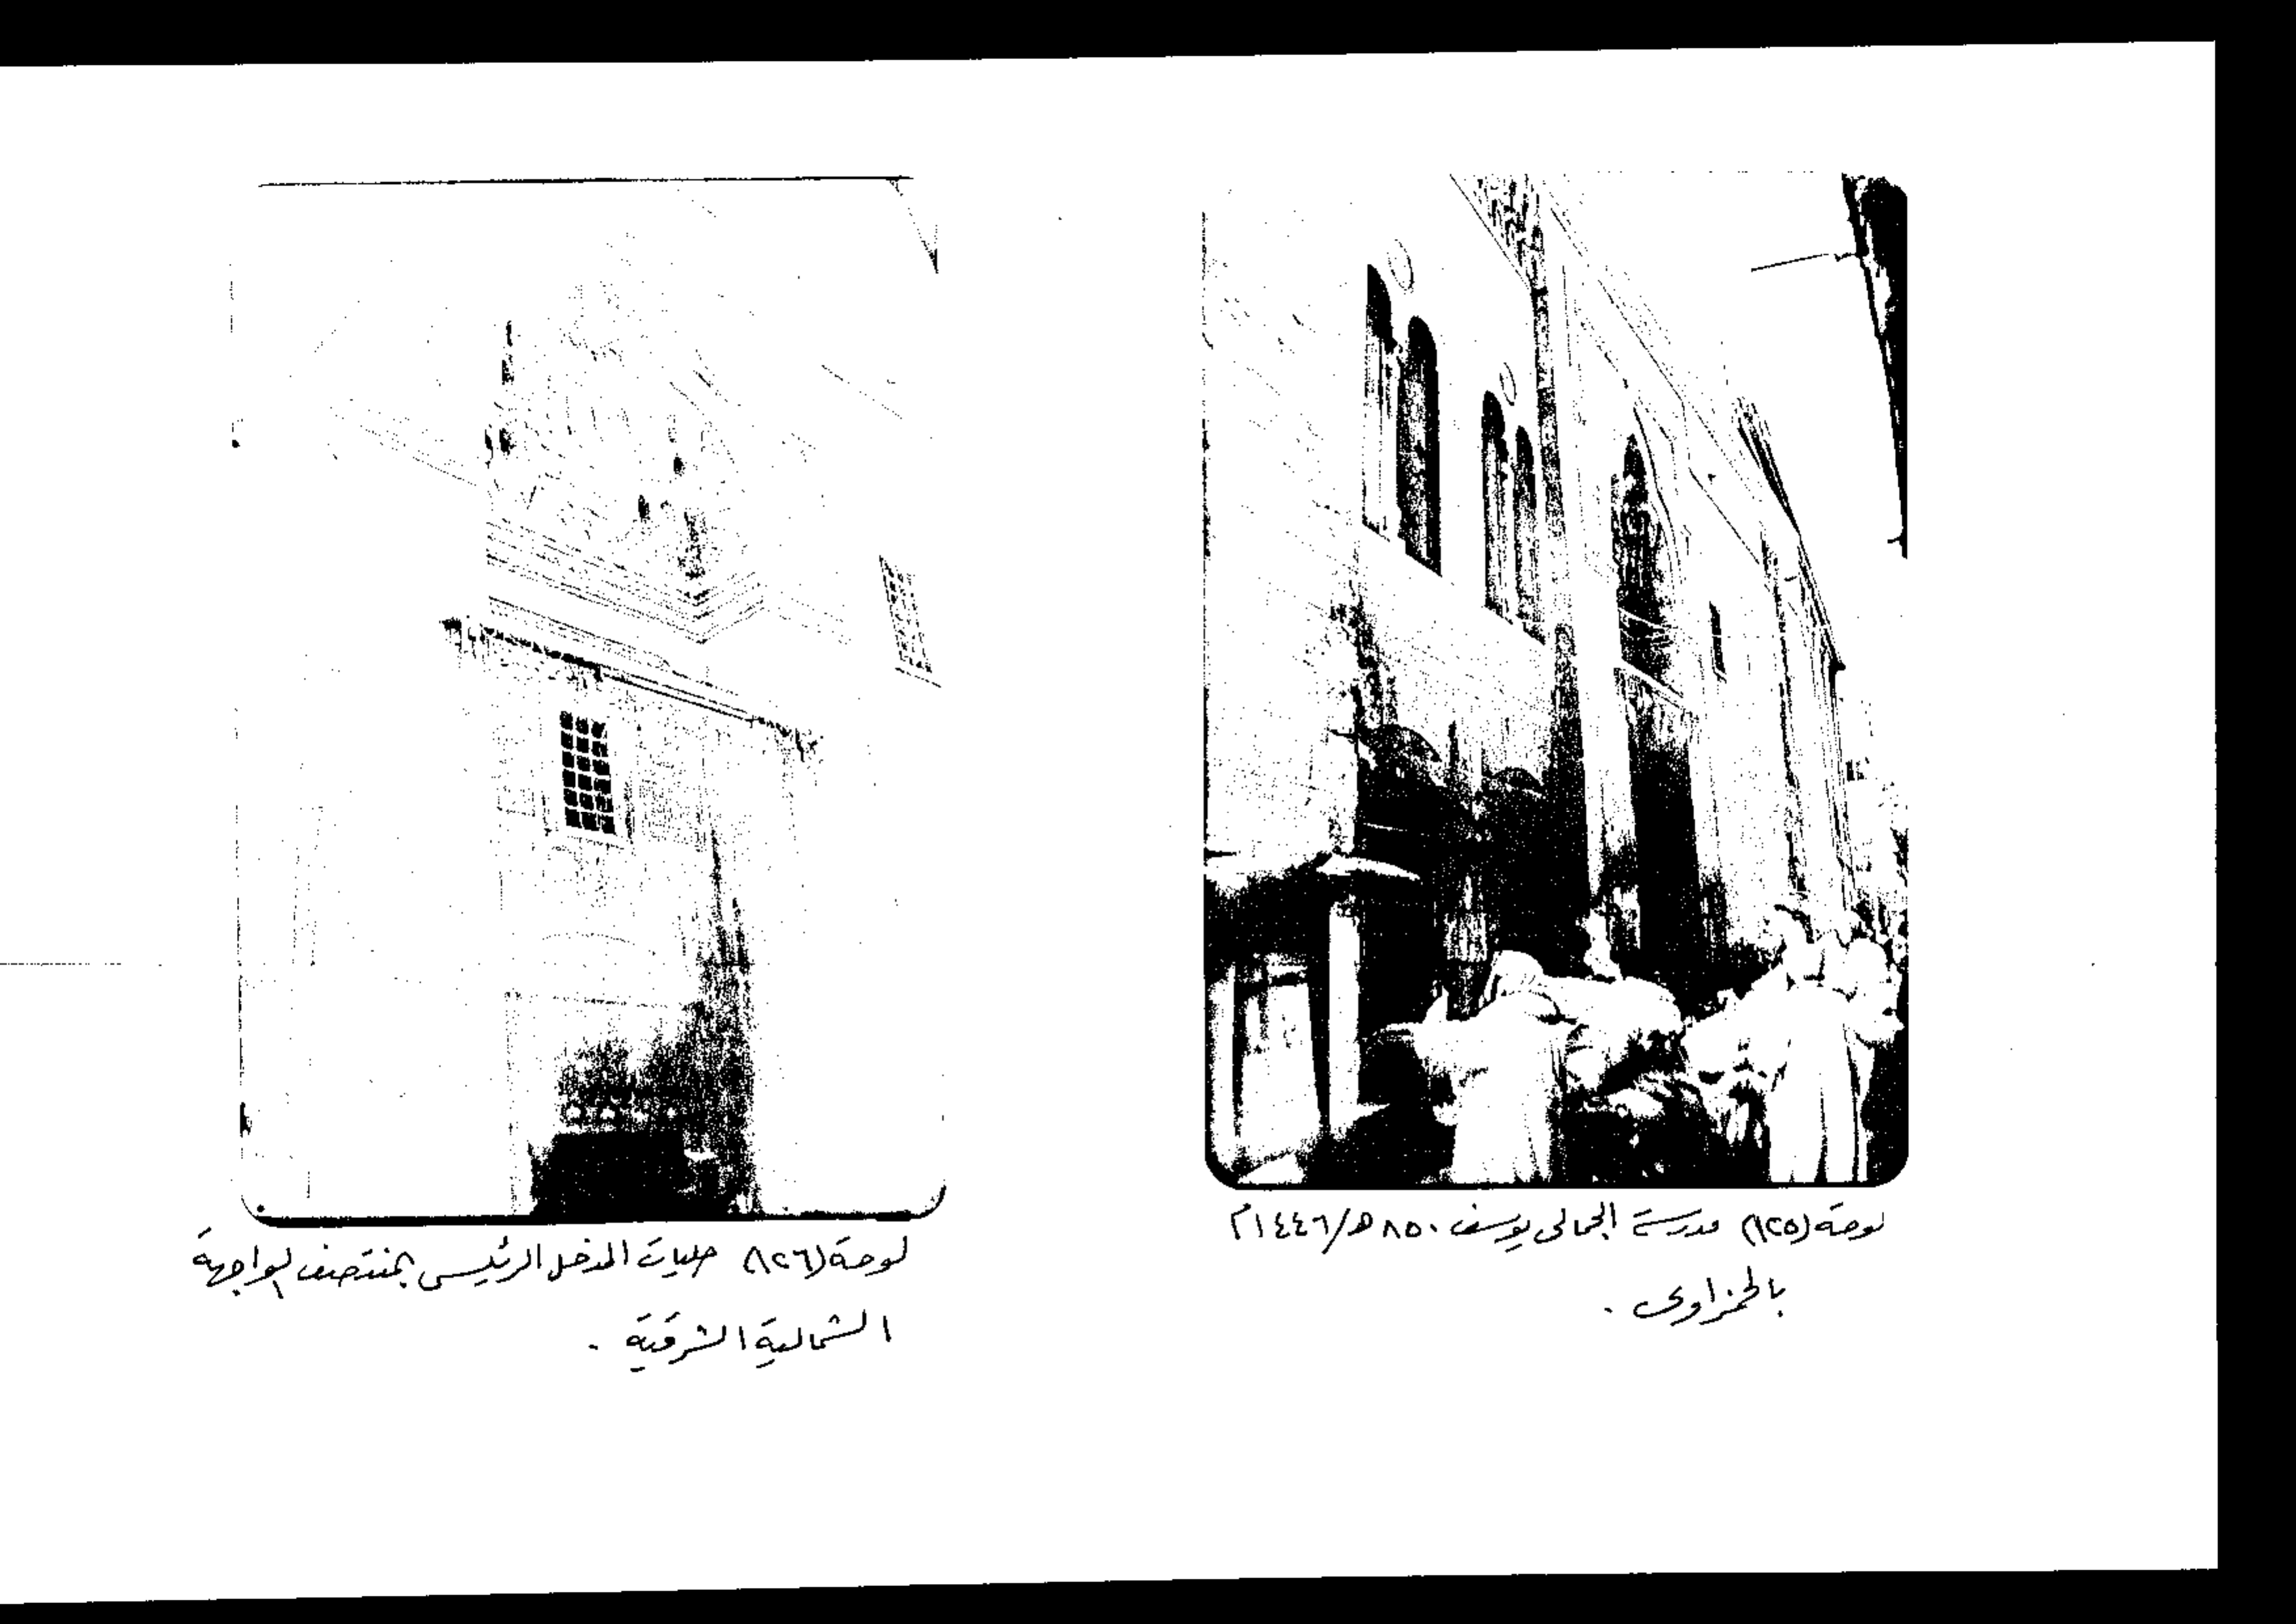 لوحة (١٢٥) مدرسة الجمالى يوسف ٨٥٠ هـ/١٤٤٦م
بالحمزاوى .
لوحة (١٢٦) حليات المدخل الرئيسى بمنتصف الواجهة
الشمالية الشرقية .